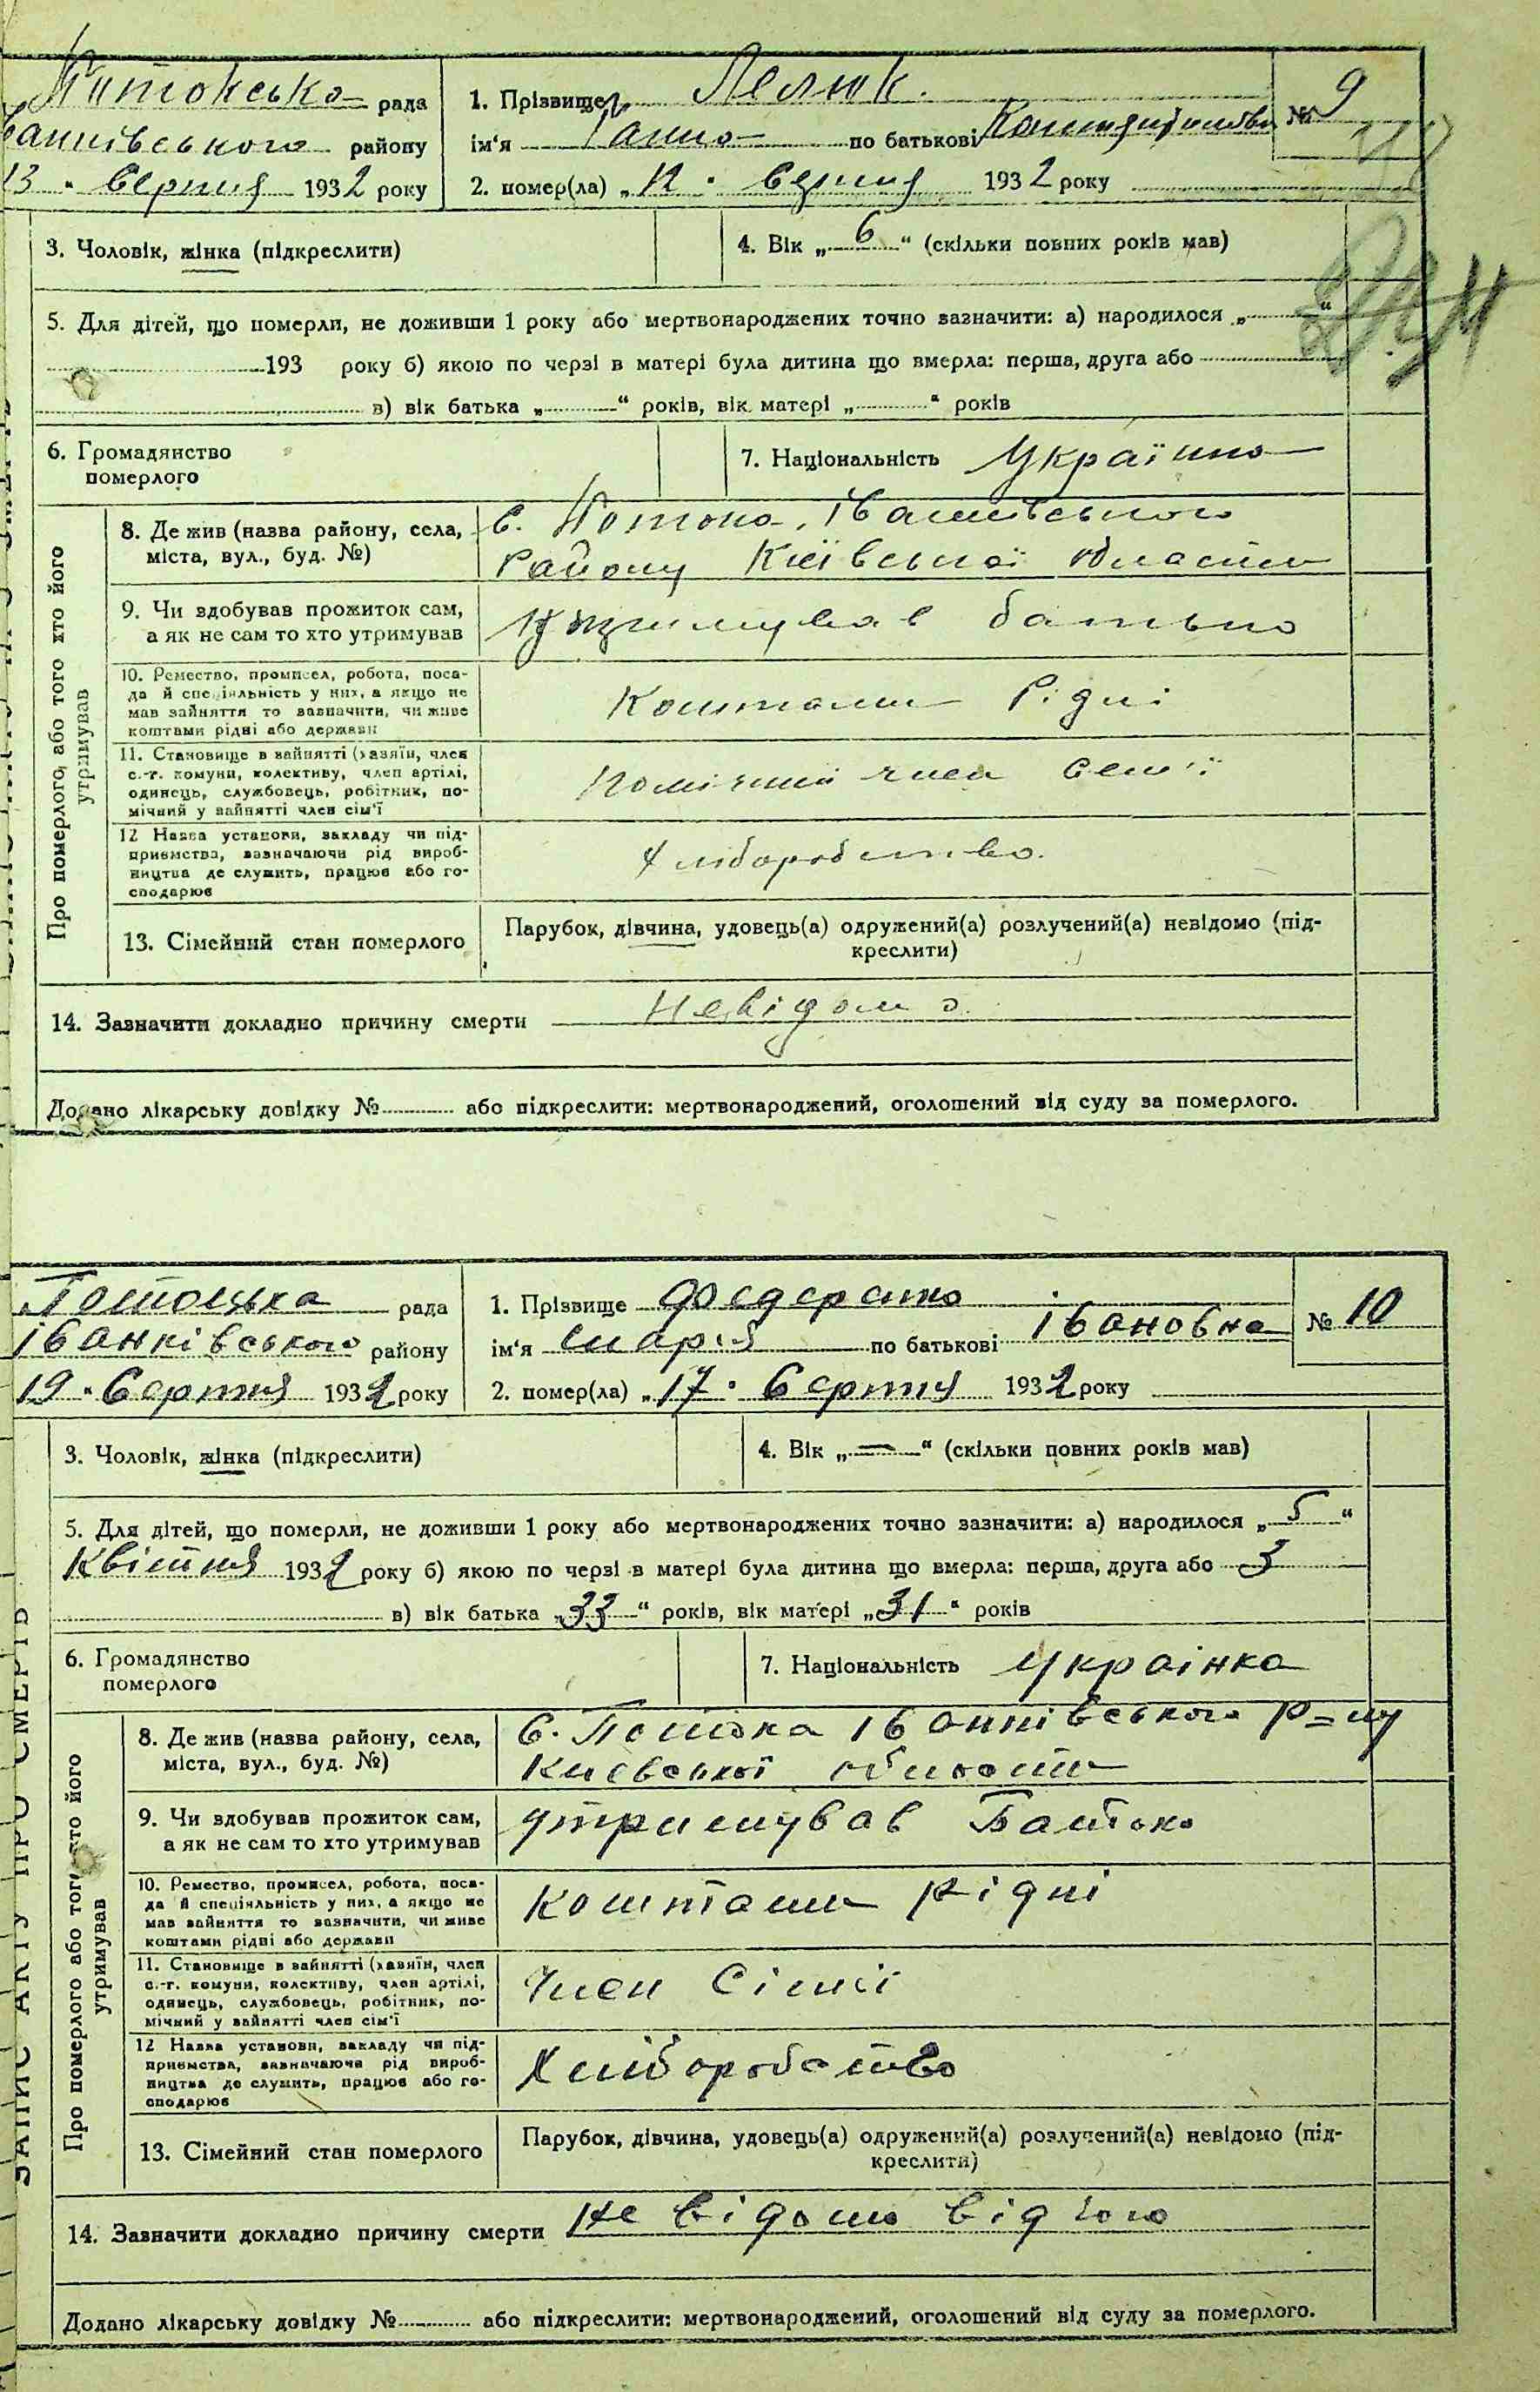 рада
району
13 " серпня 1932 року
1. Прізвище Лелюк.
ім'я Ганна по батькові
№ 9
2. помер(ла) „12 " серпня 1932 року
3. Чоловік, жінка (підкреслити)
4. Вік „ 6 “ (скільки повних років мав)
5. Для дітей, що померли, не доживши 1 року або мертвонароджених точно зазначити: а) народилося „ “
193 року б) якою по черзі в матері була дитина що вмерла: перша, друга або
в) вік батька „ “ років, вік матері „ “ років
6. Громадянство
померлого
7. Національність Українка
Про померлого, або того хто його
утримував
8. Де жив (назва району, села,
міста, вул., буд. №)
с. Потока, Іванківського
Району Київської області
9. Чи здобував прожиток сам,
а як не сам то хто утримував
Утримував батько
10. Ремество, промисел, робота, поса-
да й спеціяльність у них, а якщо не
мав зайняття то зазначити, чи живе
коштами рідні або держави
Коштами Рідні
11. Становище в зайнятті (хазяїн, член
с.-г. комуни, колективу, член артілі,
одинець, службовець, робітник, по-
мічний у зайнятті член сім'ї
Помічний член сем'ї
12 Назва установи, закладу чи під-
приємства, зазначаючи рід вироб-
ництва де служить, працює або го-
сподарює
Хліборобство.
13. Сімейний стан померлого
Парубок, дівчина, удовець(а) одружений(а) розлучений(а) невідомо (під-
креслити)
14. Зазначити докладно причину смерти Невідомо.
Додано лікарську довідку № або підкреслити: мертвонароджений, оголошений від суду за померлого.
Потоцька рада
Іванківського району
19 " Серпня 1932 року
1. Прізвище Федоренко
ім'я Марія по батькові Івановна
№ 10
2. помер(ла) „17 " Серпня 1932 року
3. Чоловік, жінка (підкреслити)
4. Вік „ — “ (скільки повних років мав)
5. Для дітей, що померли, не доживши 1 року або мертвонароджених точно зазначити: а) народилося „ 5 “
Квітня 1932 року б) якою по черзі в матері була дитина що вмерла: перша, друга або 3
в) вік батька „33“ років, вік матері „31“ років
6. Громадянство
померлого
7. Національність Українка
ЗАПИС АКТУ ПРО СМЕРТЬ
Про померлого або того хто його
утримував
8. Де жив (назва району, села,
міста, вул., буд. №)
С. Потока Іванківського Р=ну
Киевської области
9. Чи здобував прожиток сам,
а як не сам то хто утримував
утримував Батько
10. Ремество, промисел, робота, поса-
да й спеціяльність у них, а якщо не
мав зайняття то зазначити, чи живе
коштами рідні або держави
Коштами Рідні
11. Становище в зайнятті (хазяїн, член
с.-г. комуни, колективу, член артілі,
одинець, службовець, робітник, по-
мічний у зайнятті член сім'ї
Член Сімії
12 Назва установи, закладу чи під-
приємства, зазначаючи рід вироб-
ництва де служить, працює або го-
сподарює
Хліборобство
13. Сімейний стан померлого
Парубок, дівчина, удовець(а) одружений(а) розлучений(а) невідомо (під-
креслити)
14. Зазначити докладно причину смерти Не відомо від чого
Додано лікарську довідку № або підкреслити: мертвонароджений, оголошений від суду за померлого.